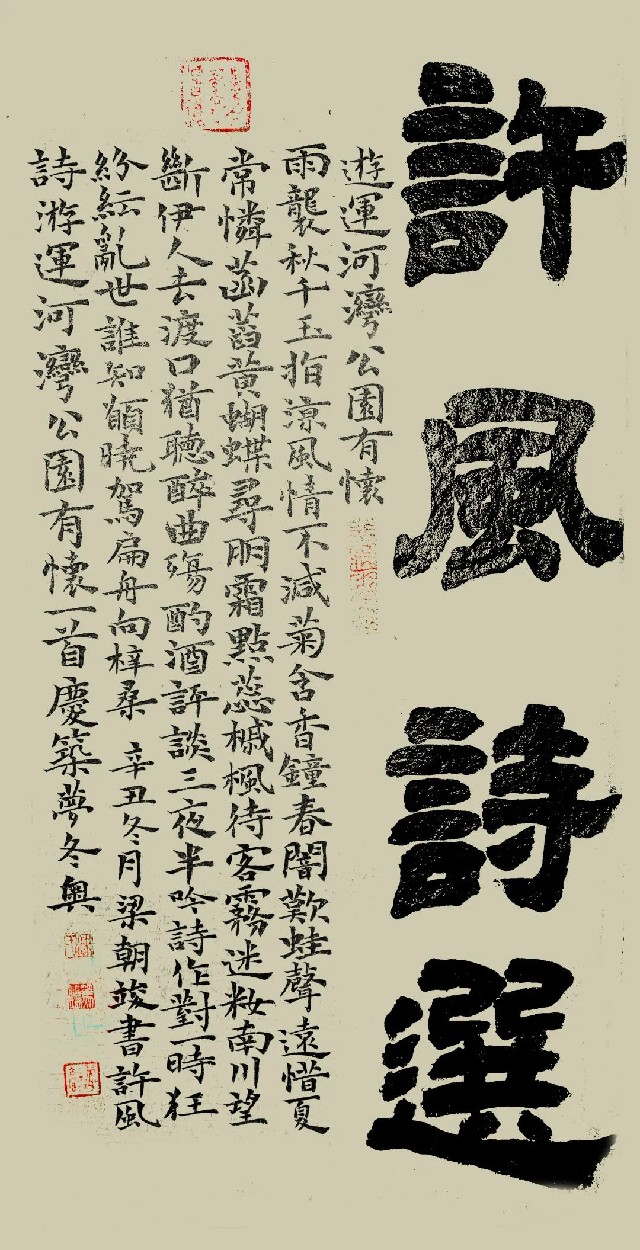 許風詩選
遊運河灣公園有懷
雨襲秋千玉指涼風情不減菊含香鐘春闇歎蛙聲遠惜夏
常憐菡萏黄蝴蝶尋朋霜點蕊槭楓待客霧迷籹南川望
斷伊人去渡口猶聽醉曲殤酌酒評談三夜半吟詩作對一時狂
紛紜亂世誰知願曉駕扁舟向梓桑 辛丑冬月梁朝竣書許風
詩游運河灣公園有懷一首慶築夢冬奥